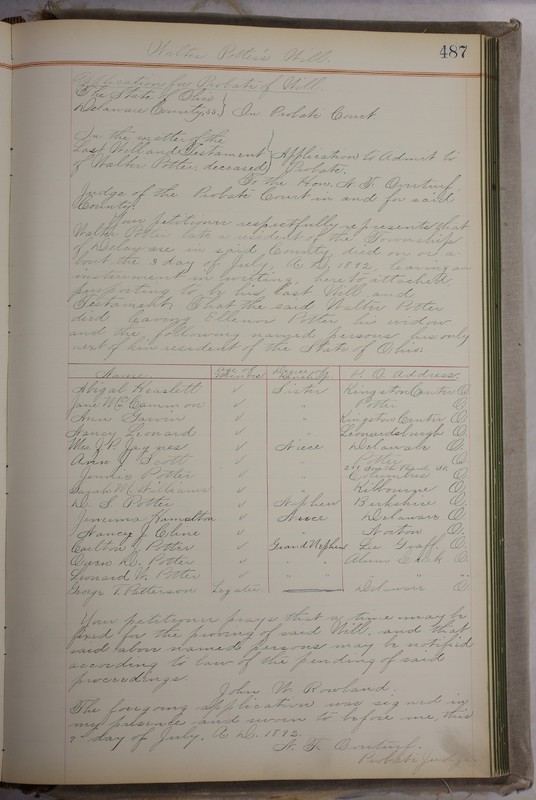 Walter Potter's Will.
487
Application for Probate of Will.
The State of Ohio
Delaware County, ss. } In Probate Court
In the matter of the
Last Will and Testament
of Walter Potter, deceased } Application to Admit to Probate.
To the Hon. 
Judge of the Probate Court in and for said
County:
Your petitioner respectfully represents that
Walter Potter late a resident of the Township
of Delaware in said County died on or a-
bout the 3 day of July, A.D. 1892, leaving an
instrument in writing, hereto attached,
purporting to be his last Will and
Testament; That the said Walter Potter
died leaving Ellenor Potter his widow
and the following named persons his only
next of kin resident of the State of Ohio:
Name. Degree of P. O. Address.
Abigal Heaslett " Sister Kingston Center O.
Jane Mc Cammon " " Potter O.
Ann " " Kingston Center O.
Nancy Leonard " " Leonardsburgh O.
Mrs J. P. Jaynes " Niece Delaware O.
Ann Scott " " Potter O.
Potter " " Columbus O.
Sarah McWilliams " " Kilbourne O.
D. S. Potter " Nephew Berkshire O.
Jemima Hamilton " Niece Delaware O.
Nancy J. Cline " " Norton O.
Carlton J. Potter " Grand Nephew Lee Graff. O.
Cyrus D. Potter " " Alum Creek O.
Leonard W. Potter " " " "
George T. Patterson Legatee Delaware O.
Your petitioner prays that a time may be
fixed for the proving of said Will, and that
said above named persons may be notified
according to law of the pending of said
proceedings.
John W. Rowland.
The foregoing application was signed in
my presence and sworn to before me, this
9" day of July, A.D. 1892.
Probate Judge